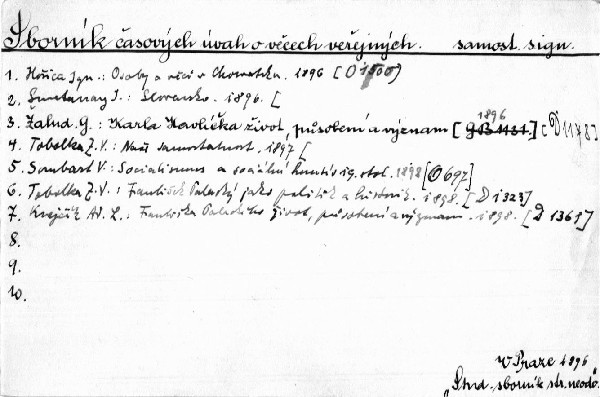 Sborník časových úvah o věcech veřejných. samost. sign.
1. Hořica Ign.: Osoby a věci v Chorvatsku. 1896 [O 1500]
2. J.: Slovensko. 1896. [
3. Žalud G.: Karla Havlíčka život, působení a význam 1896 [ ] [D 1178]
4. Tobolka Z. V.: Naší samostatnost. 1897 [
5. Sombart V.: Socialismus a sociální hnutí v 19. stol. 1898 [O 697]
6. Tobolka Z. V.: František Palacký jako politik a historik. 1898. [D 1323]
7. Krejčík Ad. L.: Františka Palackého život, působení a význam. 1898. [D 1361]
8.
9.
10.
V Praze 1896
„Stud. sborník str. neod."